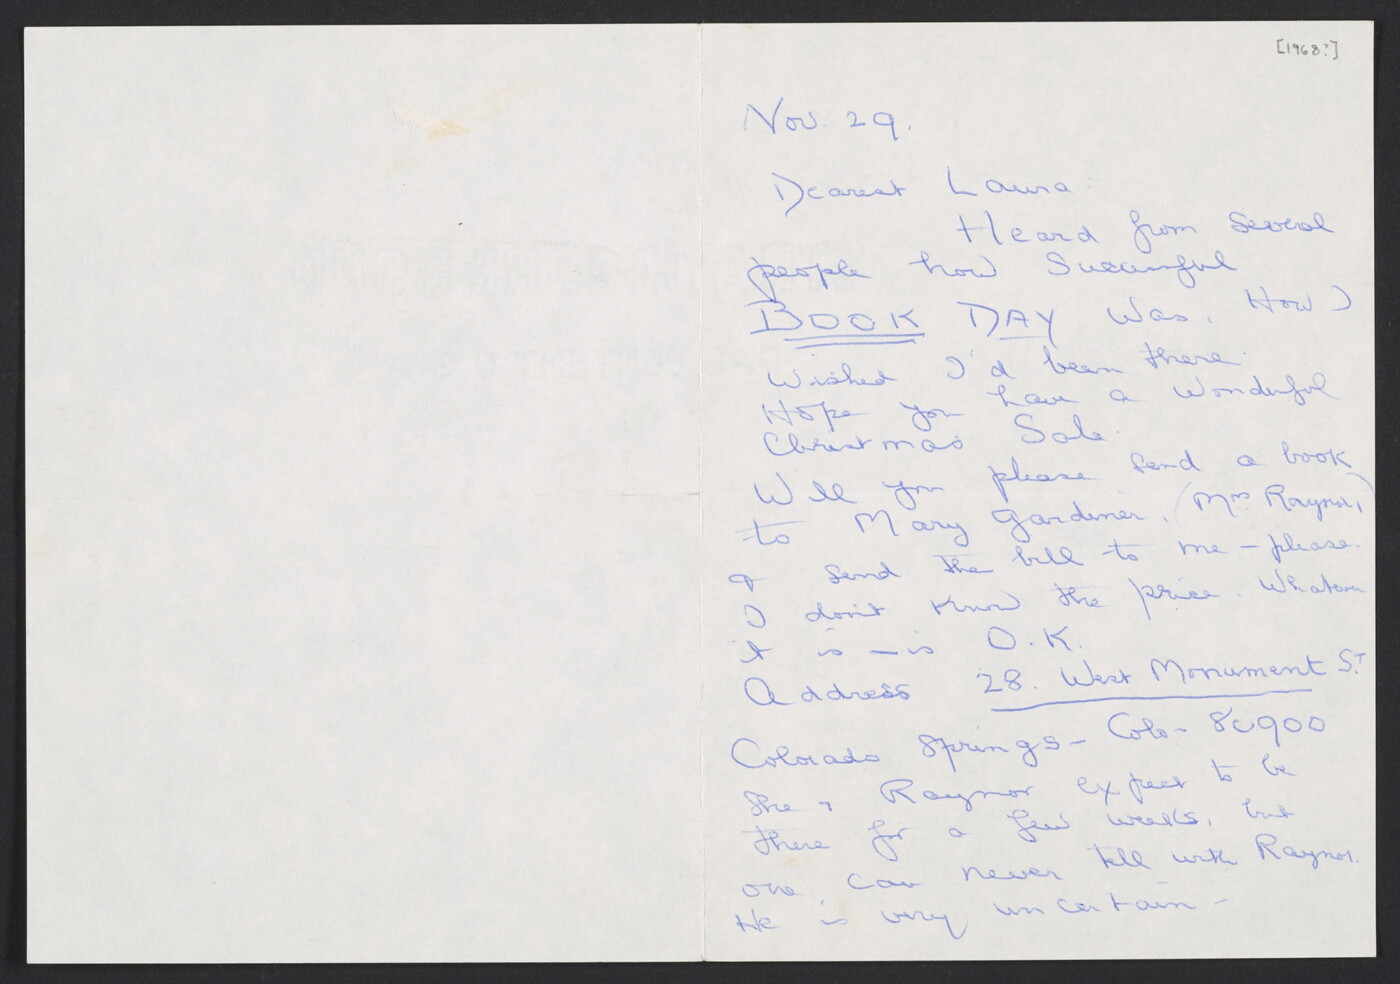 [1968?]
Nov. 29.
Dearest Laura
Heard from several
people how successful
BOOK DAY was. How I
wished I'd been there.
Hope you have a wonderful
Christmas Sale.
Will you please send a book
to Mary Gardiner. (Mrs Raynor)
& send the bill to me - please.
I don't know the price. Whatever
it is — is O.K.
Address 28. West Monument St.
Colorado Springs - Colo - 80900
She & Raynor expect to be
there for a few weeks, but
one can never tell with Raynor.
He is very uncertain -